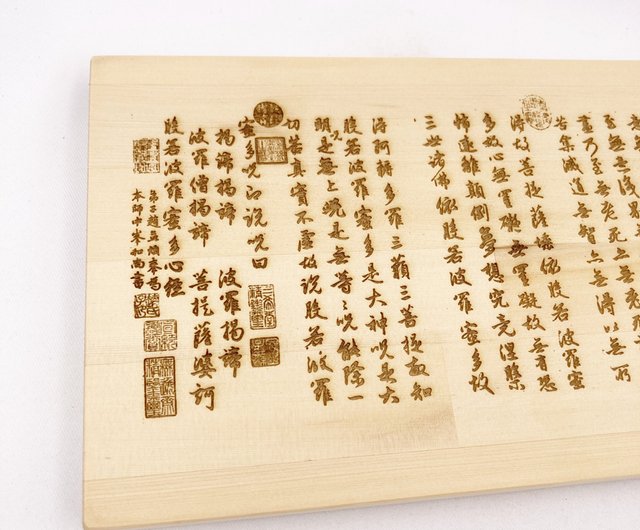 盡乃至無老死亦無老死盡無
苦集滅道無智亦無得以無所
得故菩提薩埵依般若波羅蜜
多故心無罣礙無罣礙故無有恐
怖遠離顛倒夢想究竟涅槃
三世諸佛依般若波羅蜜多故
得阿耨多羅三藐三菩提故知
般若波羅蜜多是大神咒是大
明咒是無上咒是無等等咒能除一
切苦真實不虛故說般若波羅
蜜多咒即說咒曰
揭諦揭諦 波羅揭諦
波羅僧揭諦 菩提薩婆訶
般若波羅蜜多心經
弟子趙孟頫奉為
本師中峯和尚書